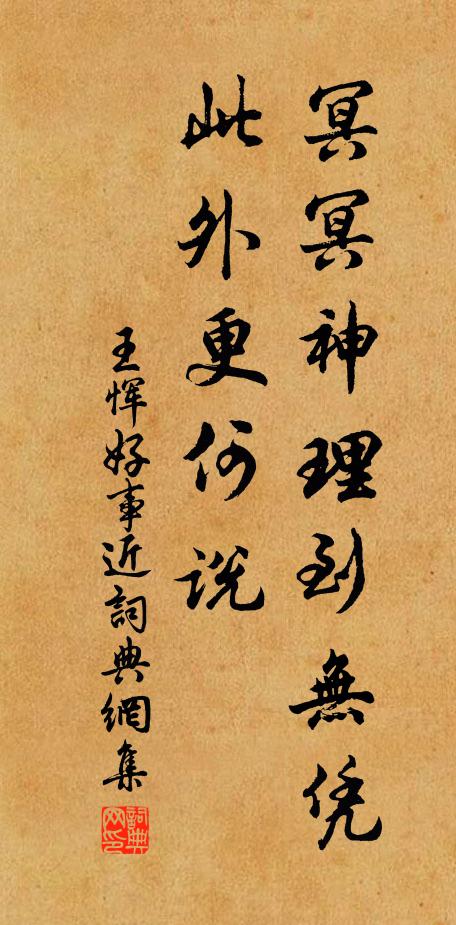 冥冥神理到無凭
此外更何说
王恽好事近詞典網集
詞典网印